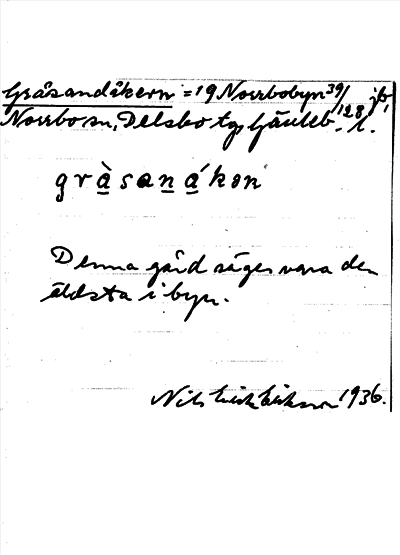 Gråsandåkern = 19 Norrbobyn 39/128 jb,
Norrbo sn, Delsbo tg, Gävleb. l.
gràsanákon
Denna gård säges vara den
äldsta i byn.
Nils Erik Eriksson 1936.